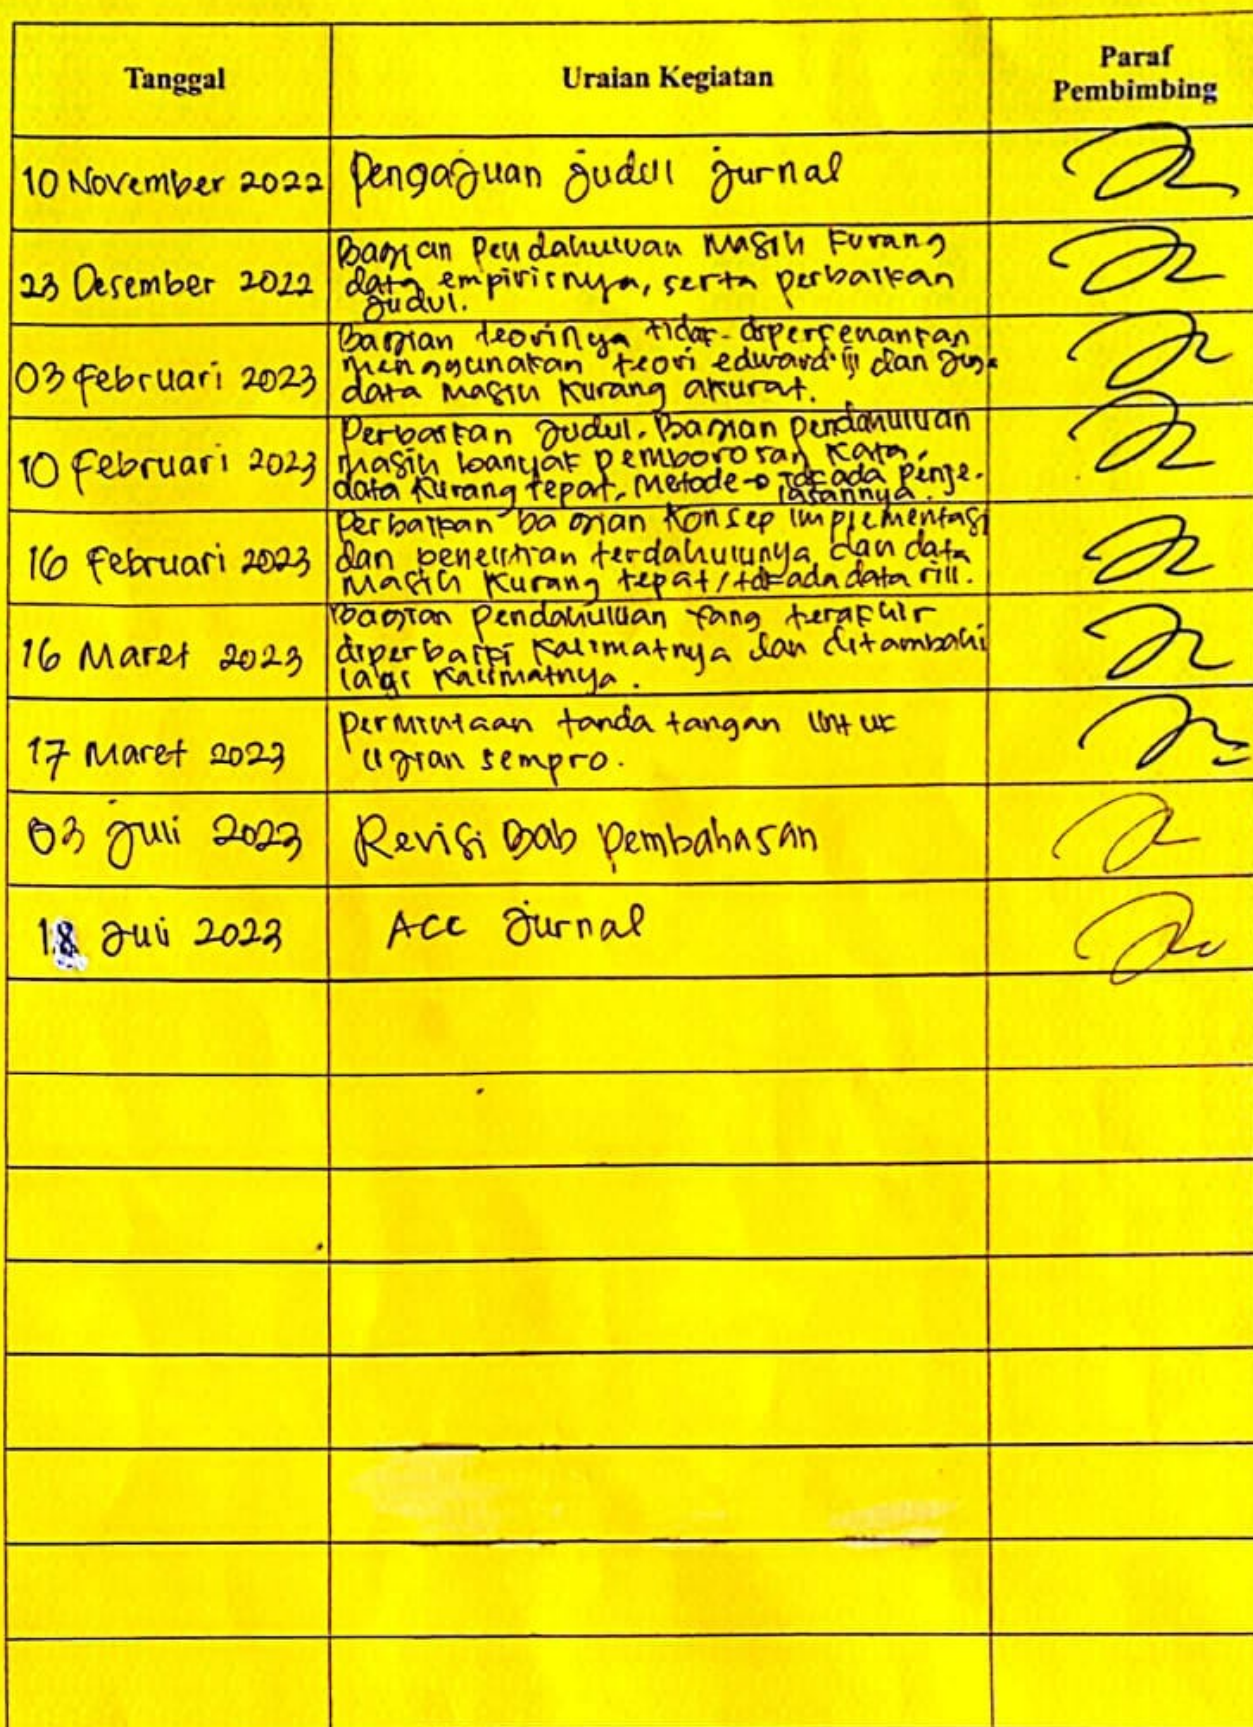 Tanggal
Uraian Kegiatan
Paraf
Pembimbing
10 November 2022
Pengajuan judul jurnal
23 Desember 2022
Bagian Pendahuluan Masih Kurang
data empirisnya, serta perbaikan
judul.
03 Februari 2023
Bagian teorinya tidak diperkenankan
menggunakan teori edward iii dan juga
data masih kurang akurat.
10 Februari 2023
Perbaikan judul. Bagian pendahuluan
masih banyak pemborosan kata,
data kurang tepat, Metode → tdk ada penje-
lasannya.
16 Februari 2023
Perbaikan bagian Konsep implementasi
dan penelitian terdahulunya dan data
masih kurang tepat/tdk ada data rill.
16 Maret 2023
Bagian pendahuluan yang terakhir
diperbaiki kalimatnya dan ditambahi
lagi kalimatnya.
17 Maret 2023
permintaan tanda tangan untuk
ujian sempro.
03 Juli 2023
Revisi Bab Pembahasan
18 Juli 2023
ACC Jurnal